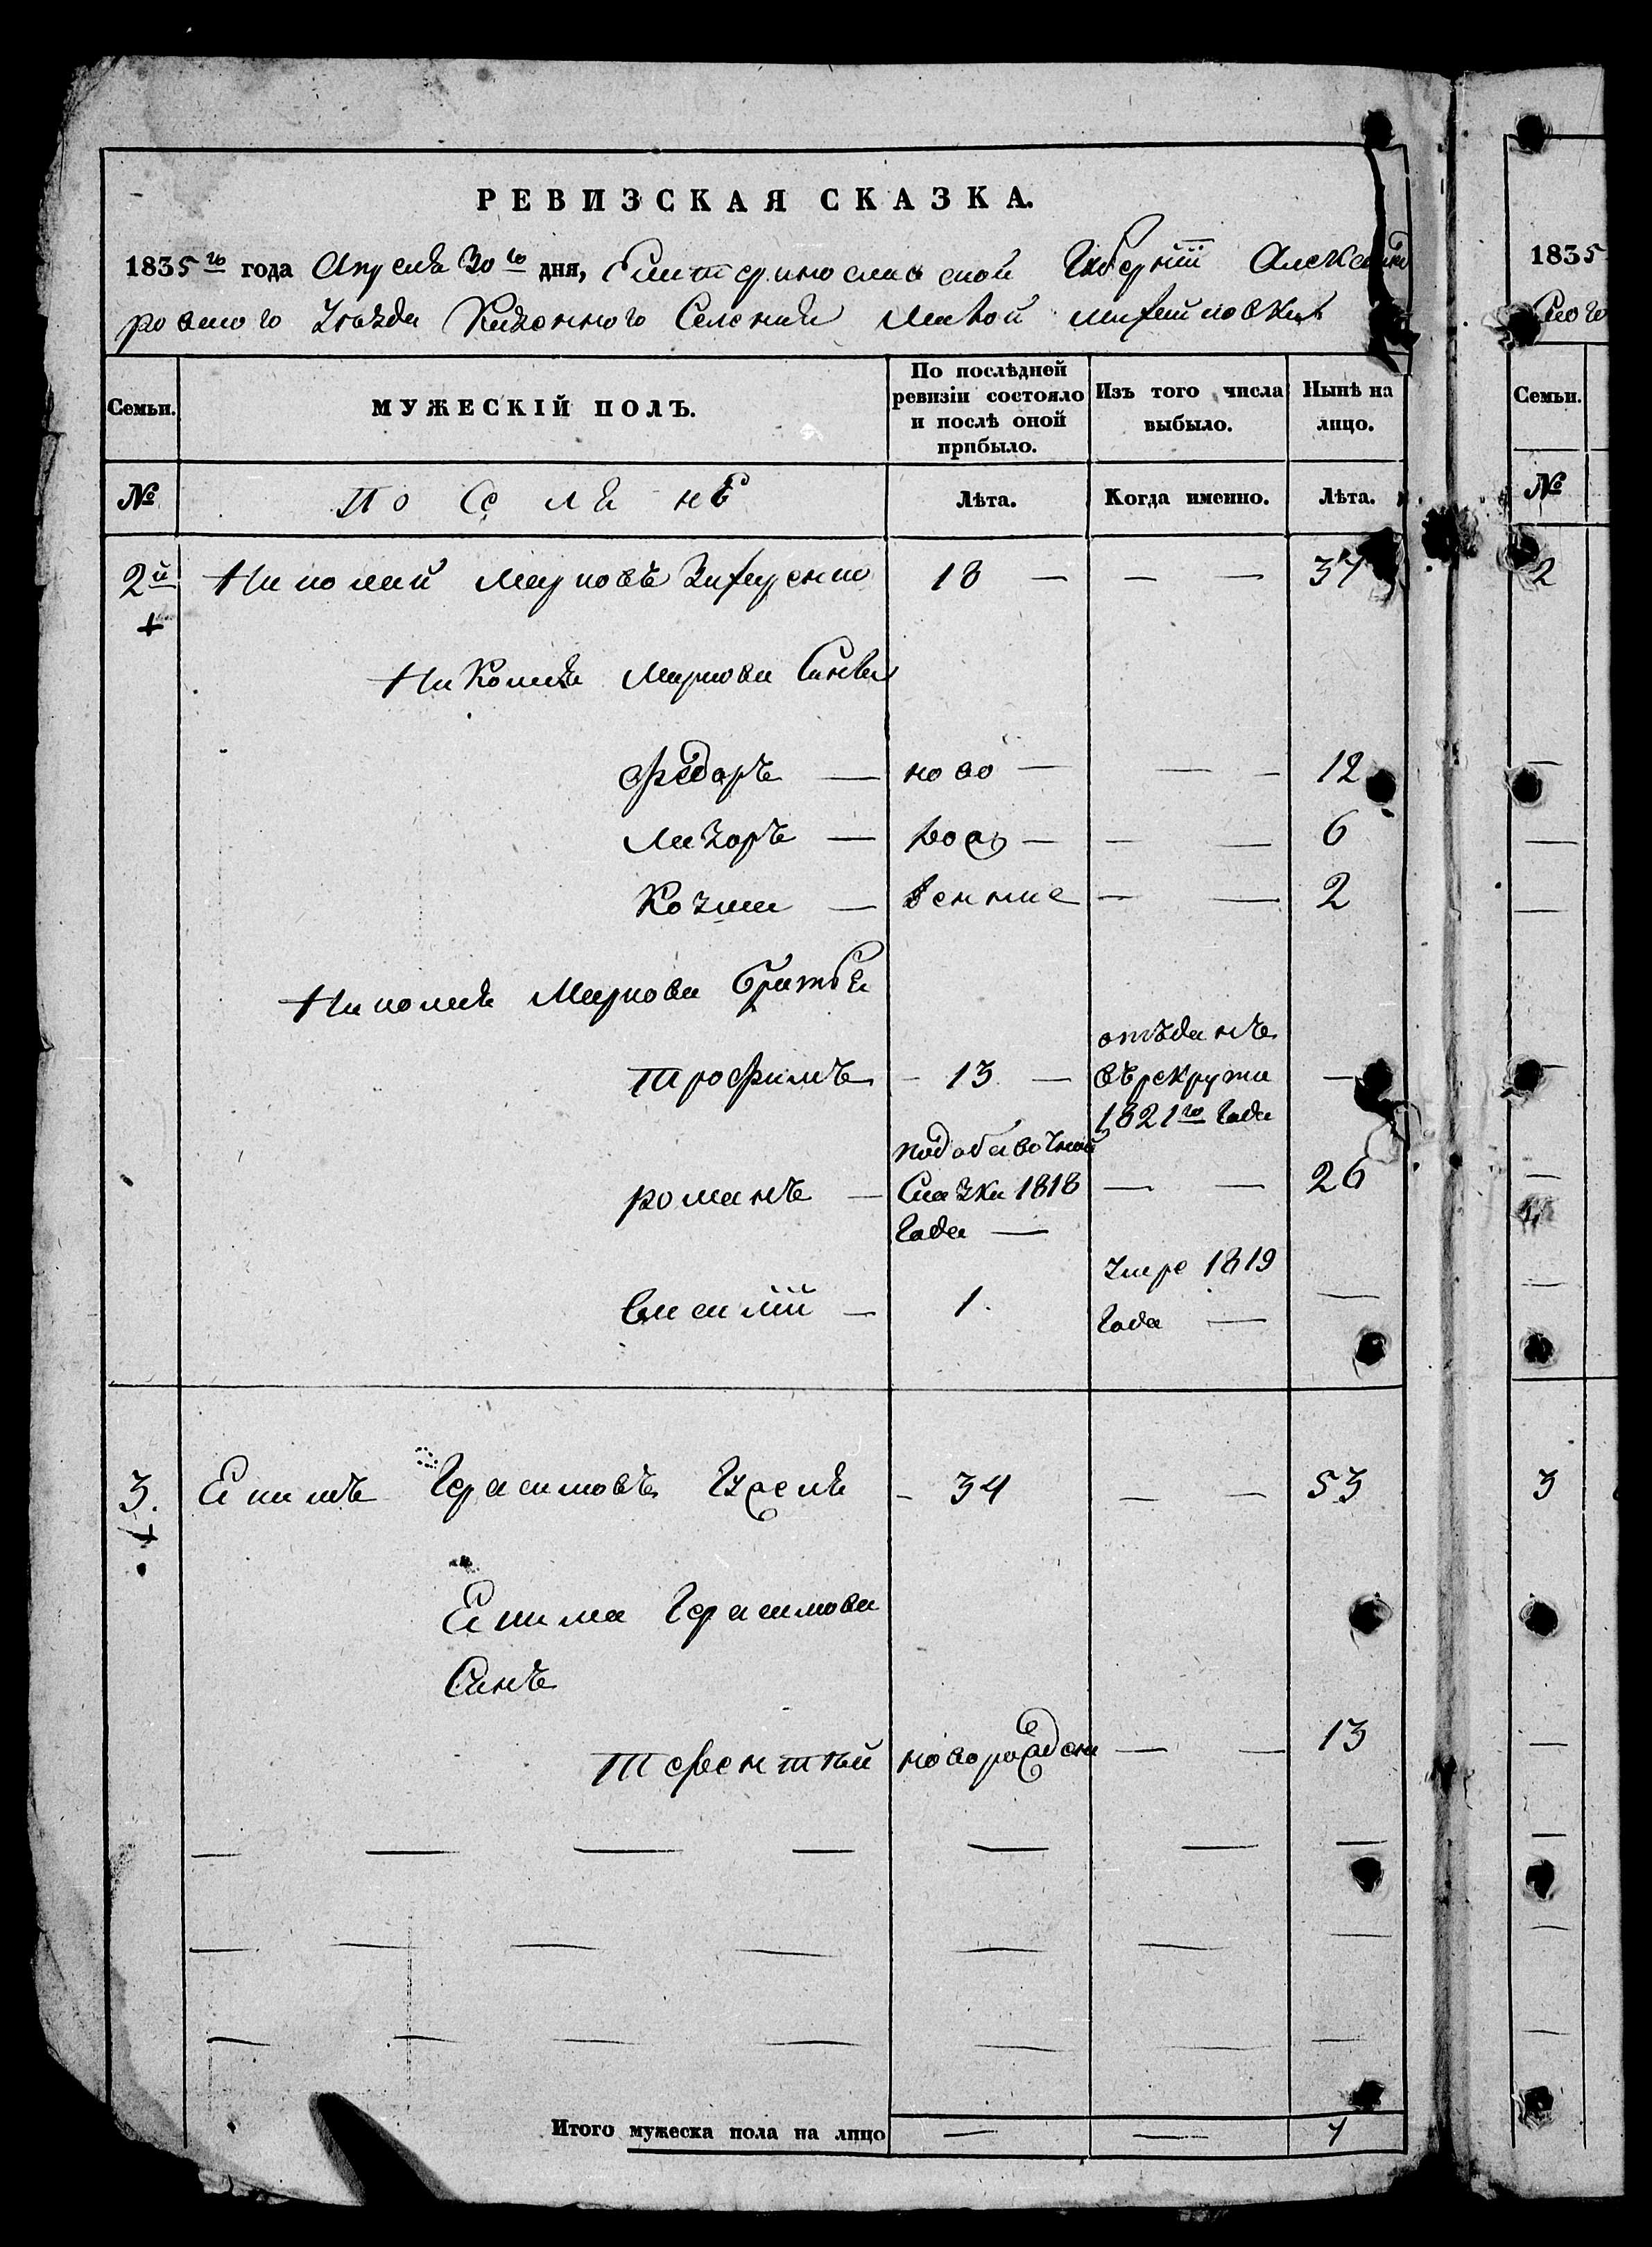 РЕВИЗСКАЯ СКАЗКА.
1835го года Апреля 30го дня, Екатеринославской Губернiи Александ
ровского Уѣзда Казенного Селенія Малой михайловки
Семьи. МУЖЕСКІЙ ПОЛЪ. По послѣдней ревизіи состояло и послѣ оной прибыло. Изъ того числа выбыло. Ныне на лицо.
№ Поселянѣ Лѣта. Когда именно. Лѣта.
2й Николай Марковъ Захарченко 18 — — — 37
Николая Маркова Синвя
Федоръ — ново — — — 12
Лазоръ — рож — — — 6
Козма — денние — — 2
Николая Маркова братья
Трофимъ — 13 — отъданъ въ рекрути 1821го Года —
романъ — подобавочной Сказки 1818 Года — — — 26
василій — 1. Умре 1819 Года — —
3. Екимъ Герасимовъ — 34 — — 53
Екима Герасимова
Синъ
Терентий новорожден — — 13
Итого мужеска пола на лицо — — 7
1835
Семьи.
№
2
3